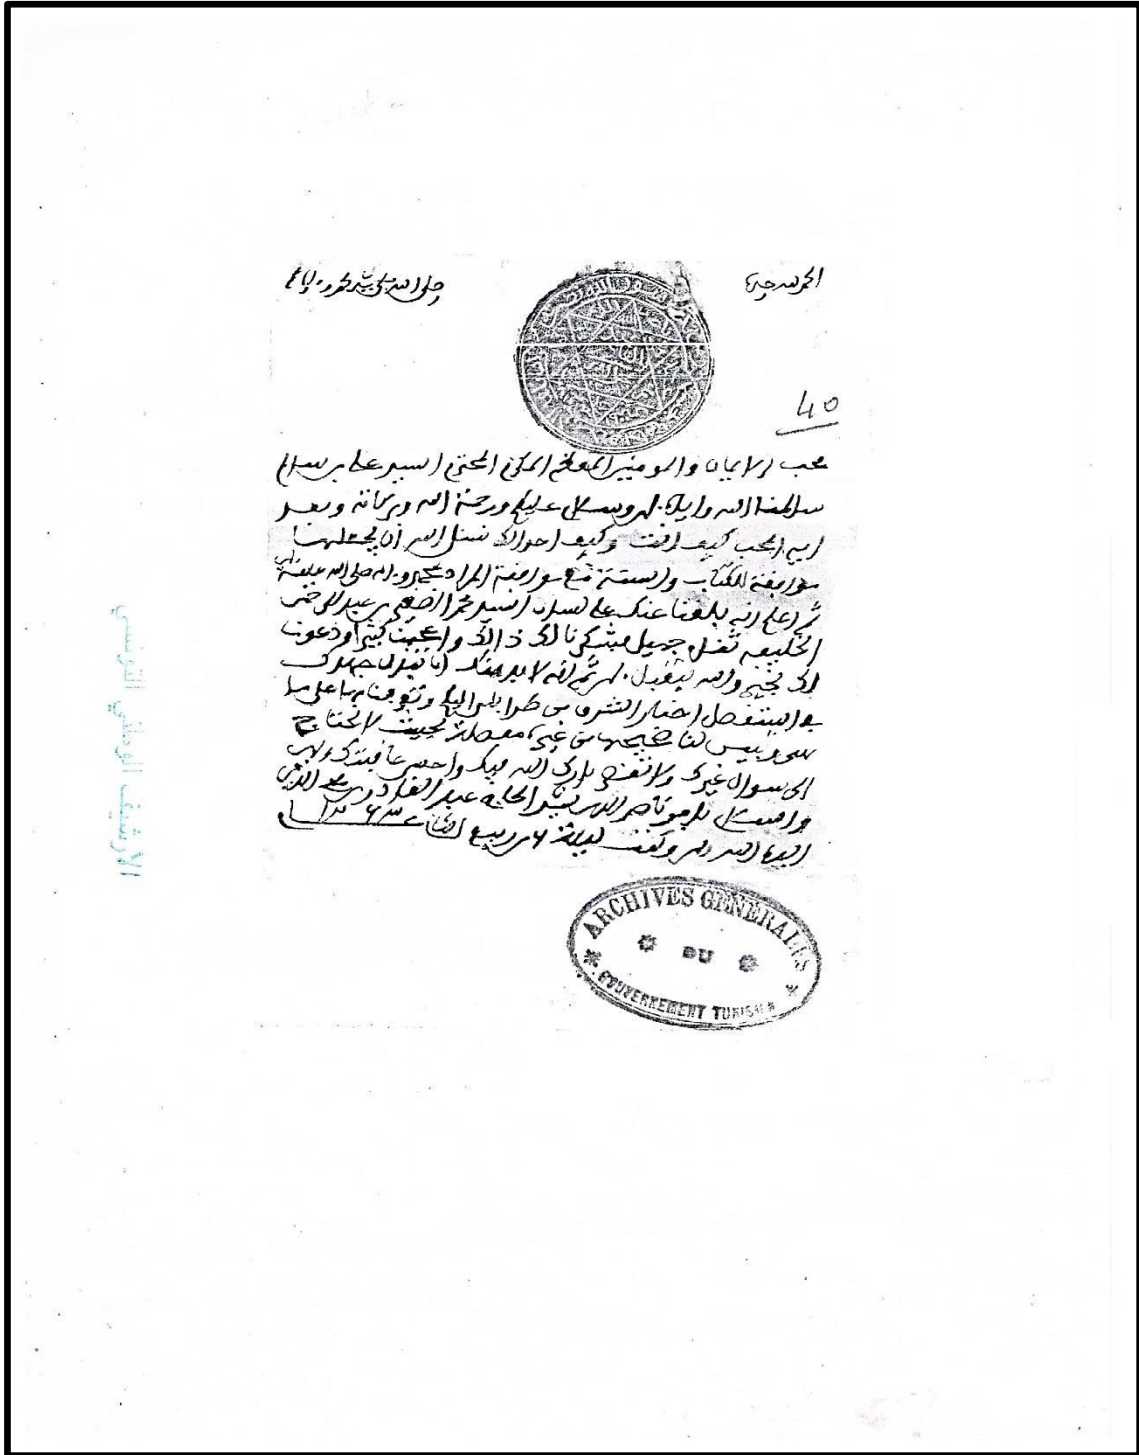 الحمد لله وحده
وصلى الله على سيدنا محمد وءاله
40
محب الإيمان والمومنين المعظم المكرم المحترم السيد علي بن سالم
سلمنا الله وإياه ءامين وسلام عليكم ورحمة الله وبركاته وبعد
أيها المحب كيف أنت وكيف أحوالك نسئل الله أن يجعلها
موافقة للكتاب والسنة مع موافقة المراد بمحمد وءاله صلى الله عليه
ثم اعلم أنه بلغنا عنك على لسان السيد محمد الصغير بن عبد الرحمن
الخليفة فعل جميل فشكرنا لك ذالك وأعجبنا كثيرا ودعونا
لك بخير والله يتقبل ءامين ثم إنه لا بد منك أن تبذل جهدك
أخبار الشرق من طرابلس إليكم
وتبين لنا صحيحها من غيره مفصلة بحيث لا نحتاج
إلى سوال غيرك ولا تقصر بارك الله فيك وأحسن عاقبتك ءامين
والسلام بأمر ناصر الدين الحاج عبد القادر بن محي الدين
أيده الله ءامين وكتب ليلة 6 من ربيع الثاني
ARCHIVES GENERALES
DU
GOUVERNEMENT TUNISIEN
الأرشيف الوطني التونسي